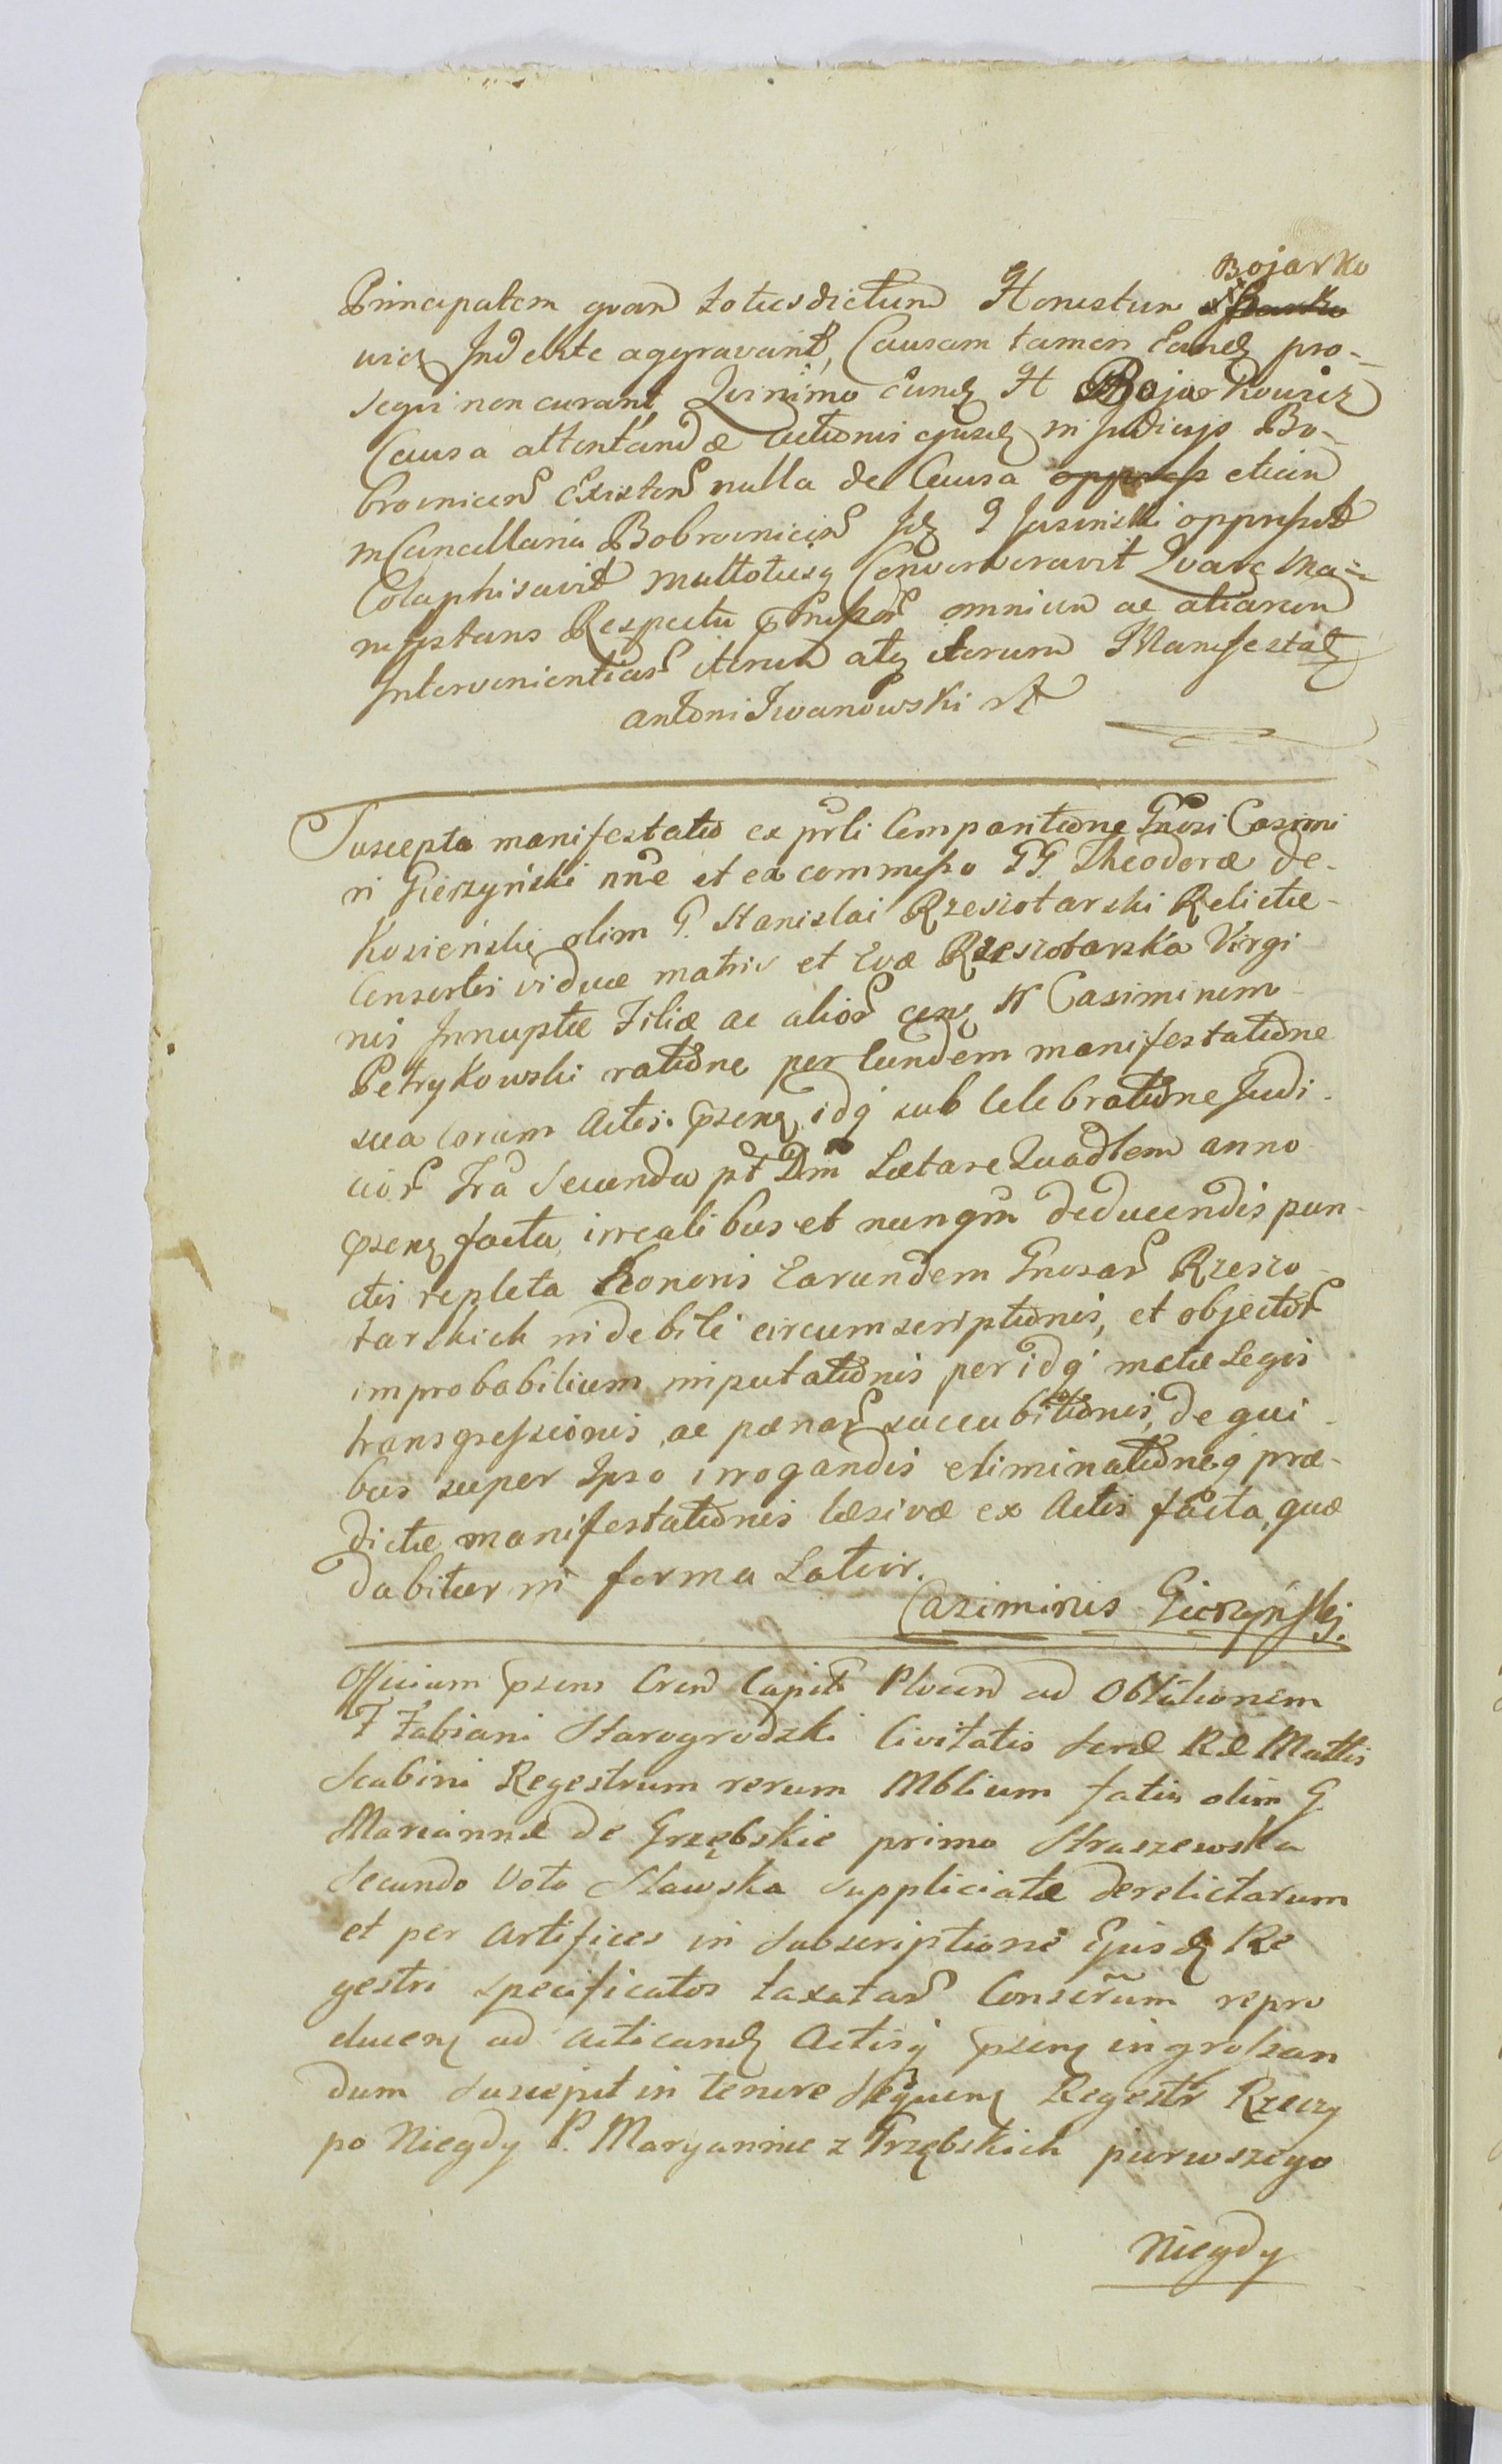 Bojarko
Principalem quam totiesdictum Honestum
wicz Indebite aggravant, Causam tamen Eandq pro-
sequi non curant, Quinimo eundq H Bojarkowicz
Causa attentandæ Actionis ejusdq in Judicijs Bo-
brownicen Existen nulla de Causa oppress etiam
in Cancellaria Bobrownicien Idq G Jasinski oppressit
Colaphisavit multotiesq Converberavit Quare Ma-
nifestans Respectu præmissor omnium ac aliarum
Intervenientium iterum atq iterum Manifestat
Antoni Iwanowski
Suscepta manifestatio ex prsli Comparitione Gnosi Casimi
ri Gierzyński nne et ex commisso GG. Theodoræ de-
Kosieńskię olim G. Stanislai Rzeszotarski Relictæ-
Consortis viduæ matris et Evæ Rzeszotarska Virgi
nis Innuptæ Filiæ ac alior ctra N Casimirum
Petrykowski ratione per Eundem manifestatione
sua coram Actis. psens idq sub Celebratione Judi-
cior Fra Secunda pt Dm Lætare Quadlem anno
psenq facta, irrealibus et nunqm deducendis pun-
ctis repleta Honoris Earundem Gnosar Rzeszo-
tarskich indebiti circumscriptionis, et objector
improbabilium imputationis per idq metæ Legis
transgressionis, ac pænar succubitionis, de qui-
bus super Ipso irrogandis eliminationeq præ-
dictæ manifestationis læsivæ ex Actis facta, quæ
dabitur in forma Latior.
Casimirus Gierzyński.
Officium psens Cren Capit Plocen ad Oblationem
F Fabiani Starogrodzki Civitatis Seræ Ræ Mattis
Scabini Regestrum rerum Mblium fatis olim G.
Mariannæ de Grzębskie primo Straszewska
Secundo Voto Sławska suppliciatæ derelictarum
et per Artifices in Subscriptione Ejusdq Re
gestri specificatos taxatar Conscrum repro
ducenq ad acticandq Actisq psenq ingrossan
dum Suscepit in tenore Sequenq Regestr Rzeczy
po Niegdy P. Maryannie z Grzębskich pierwszego
Niegdy